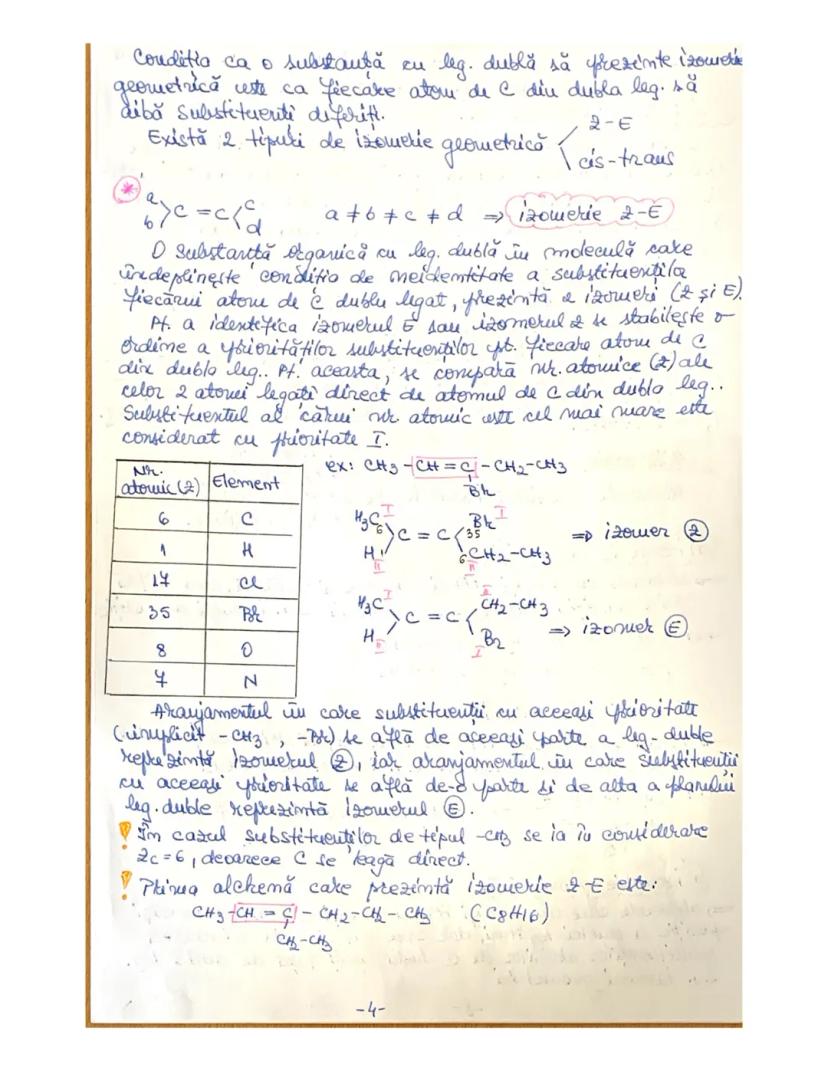 Condiția ca o substanță cu leg. dublă să prezinte izomerie
geometrică este ca fiecare atom de C din dubla leg. să
aibă substituenți diferiți.
Există 2 tipuri de izomerie geometrică
Z-E
cis-trans
* a b >C=C< c d    a ≠ b ≠ c ≠ d ⇒ izomerie Z-E
O substanță organică cu leg. dublă în moleculă care
îndeplinește condiția de neidentitate a substituenților
fiecărui atom de C dublu legat, prezintă 2 izomeri (Z și E).
Pt. a identifica izomerul E sau izomerul Z se stabilește o
ordine a priorităților substituenților pt. fiecare atom de C
din dubla leg.. Pt. aceasta, se compară nr. atomice (Z) ale
celor 2 atomi legați direct de atomul de C din dubla leg..
Substituentul al cărui nr. atomic este cel mai mare este
considerat cu prioritate I.
Nr. atomic (Z) Element
6 C
1 H
17 Cl
35 Br
8 O
7 N
ex: CH3-CH=C-CH2-CH3
Br
H3C I Br I
6 >C=C< 35 ⇒ izomer Z
H 1 II 6 CH2-CH3 II
H3C I II CH2-CH3
>C=C< ⇒ izomer E
H II I Br
Aranjamentul în care substituenții cu aceeași prioritate
(implicit -CH3, -Br) se află de aceeași parte a leg. duble
reprezintă izomerul Z, iar aranjamentul în care substituenții
cu aceeași prioritate se află de-o parte și de alta a planului
leg. duble reprezintă izomerul E.
! În cazul substituenților de tipul -CH3 se ia în considerare
Zc=6, deoarece C se leagă direct.
! Prima alchenă care prezintă izomerie Z-E este:
CH3-CH=C-CH2-CH2-CH3 (C8H16)
CH2-CH3
-4-